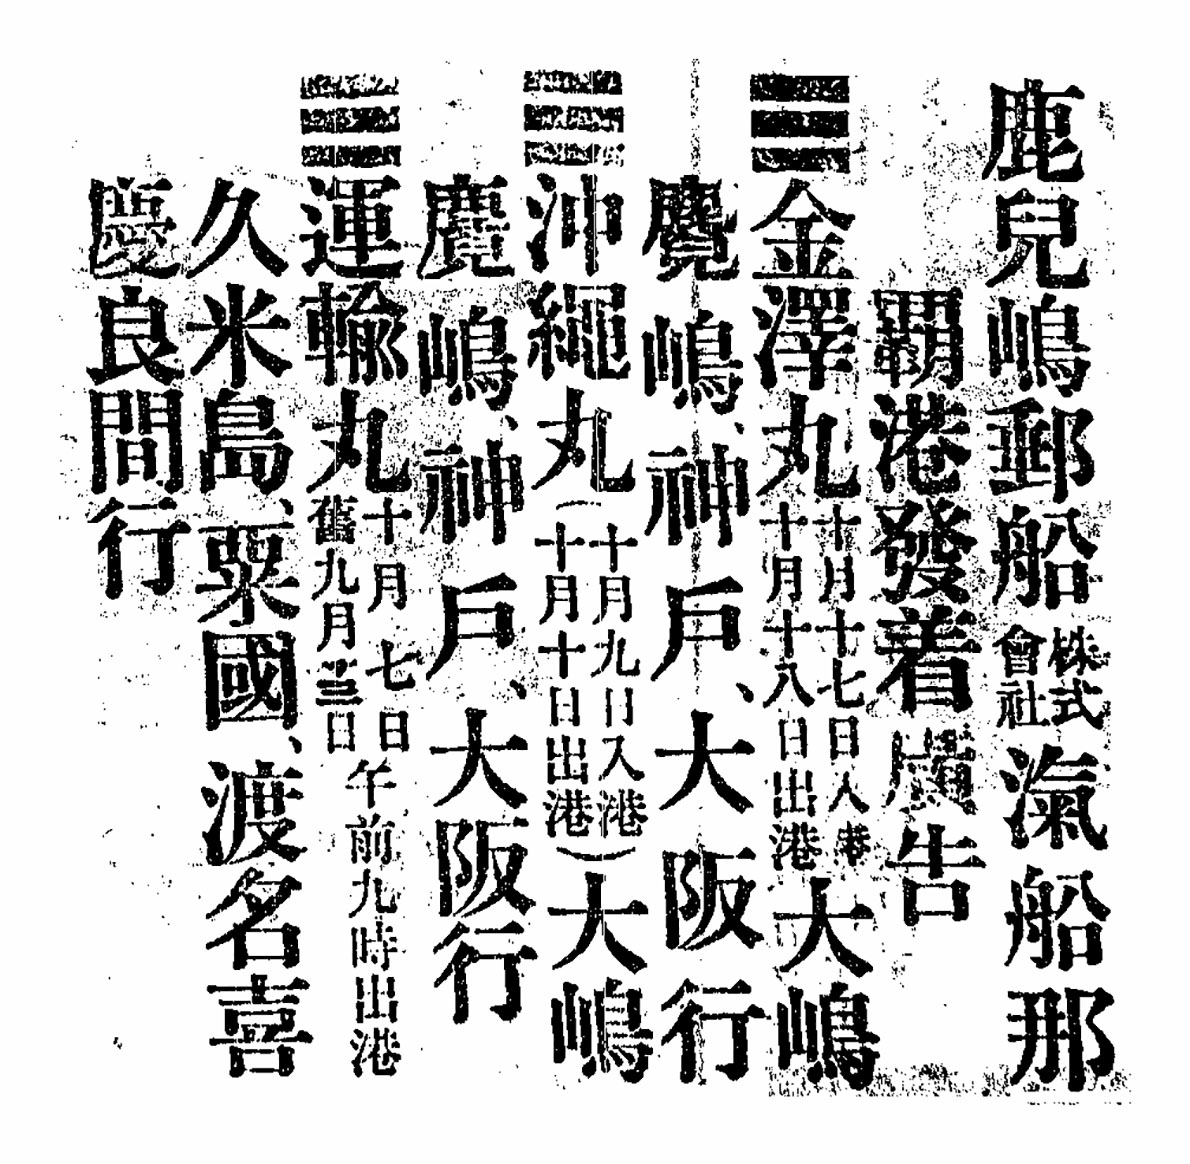 鹿兒嶋郵船株式會社滊船那
覇港發着廣告
☰金澤丸十月十七日入港
十月十八日出港大嶋
麑嶋、神戶、大阪行
☰沖繩丸(十月九日入港
十月十日出港)大嶋
麑嶋、神戶、大阪行
☰運輸丸十月七日
舊九月十三日午前九時出港
久米島、粟國、渡名喜
慶良間行